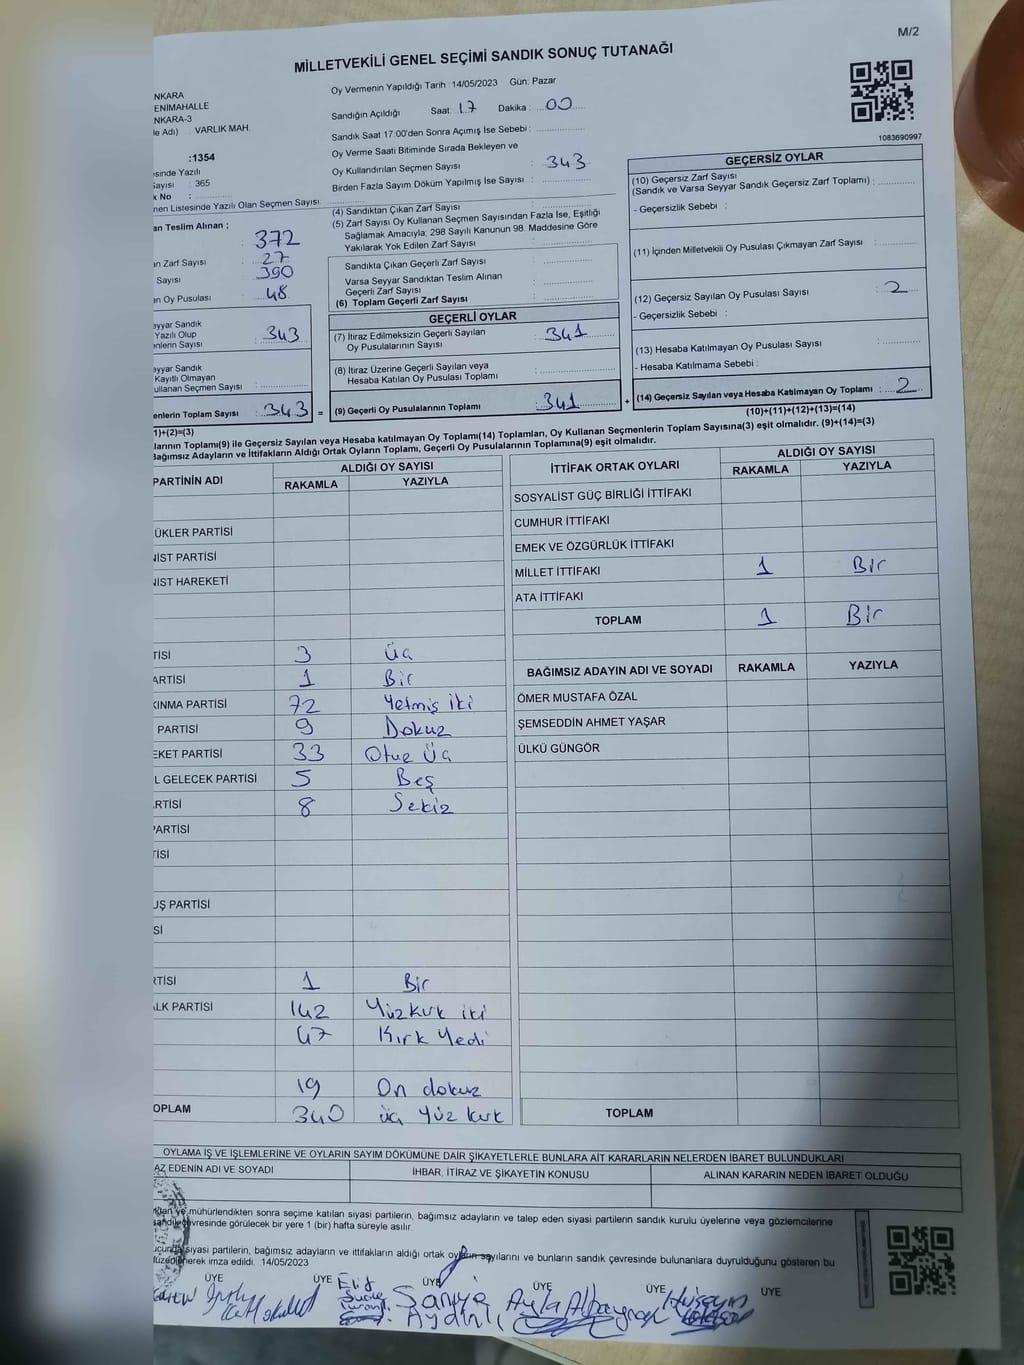 M/2
MİLLETVEKİLİ GENEL SEÇİMİ SANDIK SONUÇ TUTANAĞI
NKARA
ENİMAHALLE
NKARA-3
le Adı) : VARLIK MAH.
:1354
esinde Yazılı
Sayısı : 365
k No :
men Listesinde Yazılı Olan Seçmen Sayısı
Oy Vermenin Yapıldığı Tarih : 14/05/2023 Gün: Pazar
Sandığın Açıldığı Saat: 17 Dakika : 00
Sandık Saat 17:00'den Sonra Açımış İse Sebebi :
Oy Verme Saati Bitiminde Sırada Bekleyen ve
Oy Kullandırılan Seçmen Sayısı : 343
Birden Fazla Sayım Döküm Yapılmış İse Sayısı :
1083690997
an Teslim Alınan ; : 372
an Zarf Sayısı : 27
Sayısı : 390
an Oy Pusulası : 48
eyyar Sandık
Yazılı Olup
enlerin Sayısı : 343
eyyar Sandık
Kayıtlı Olmayan
ullanan Seçmen Sayısı :
enlerin Toplam Sayısı : 343 =
(4) Sandıktan Çıkan Zarf Sayısı :
(5) Zarf Sayısı Oy Kullanan Seçmen Sayısından Fazla İse, Eşitliği
Sağlamak Amacıyla; 298 Sayılı Kanunun 98. Maddesine Göre
Yakılarak Yok Edilen Zarf Sayısı :
Sandıkta Çıkan Geçerli Zarf Sayısı :
Varsa Seyyar Sandıktan Teslim Alınan
Geçerli Zarf Sayısı :
(6) Toplam Geçerli Zarf Sayısı :
GEÇERLİ OYLAR
(7) İtiraz Edilmeksizin Geçerli Sayılan
Oy Pusulalarının Sayısı : 341
(8) İtiraz Üzerine Geçerli Sayılan veya
Hesaba Katılan Oy Pusulası Toplamı :
(9) Geçerli Oy Pusulalarının Toplamı : 341 +
GEÇERSİZ OYLAR
(10) Geçersiz Zarf Sayısı
(Sandık ve Varsa Seyyar Sandık Geçersiz Zarf Toplamı) :
- Geçersizlik Sebebi :
(11) İçinden Milletvekili Oy Pusulası Çıkmayan Zarf Sayısı :
(12) Geçersiz Sayılan Oy Pusulası Sayısı : 2
- Geçersizlik Sebebi :
(13) Hesaba Katılmayan Oy Pusulası Sayısı :
- Hesaba Katılmama Sebebi :
(14) Geçersiz Sayılan veya Hesaba Katılmayan Oy Toplamı : 2
(10)+(11)+(12)+(13)=(14)
1)+(2)=(3)
larının Toplamı(9) ile Geçersiz Sayılan veya Hesaba katılmayan Oy Toplamı(14) Toplamları, Oy Kullanan Seçmenlerin Toplam Sayısına(3) eşit olmalıdır. (9)+(14)=(3)
Bağımsız Adayların ve İttifakların Aldığı Ortak Oyların Toplamı, Geçerli Oy Pusulalarının Toplamına(9) eşit olmalıdır.
PARTİNİN ADI
ALDIĞI OY SAYISI
RAKAMLA YAZIYLA
ÜKLER PARTİSİ
NİST PARTİSİ
NİST HAREKETİ
TİSİ 3 Üç
ARTİSİ 1 Bir
KINMA PARTİSİ 72 Yetmiş iki
PARTİSİ 9 Dokuz
EKET PARTİSİ 33 Otuz Üç
L GELECEK PARTİSİ 5 Beş
ARTİSİ 8 Sekiz
PARTİSİ
TİSİ
UŞ PARTİSİ
Sİ
RTİSİ 1 Bir
ALK PARTİSİ 142 Yüzkırk iki
47 Kırk Yedi
19 On dokuz
OPLAM 340 üç Yüz kırk
İTTİFAK ORTAK OYLARI
ALDIĞI OY SAYISI
RAKAMLA YAZIYLA
SOSYALİST GÜÇ BİRLİĞİ İTTİFAKI
CUMHUR İTTİFAKI
EMEK VE ÖZGÜRLÜK İTTİFAKI
MİLLET İTTİFAKI 1 Bir
ATA İTTİFAKI
TOPLAM 1 Bir
BAĞIMSIZ ADAYIN ADI VE SOYADI RAKAMLA YAZIYLA
ÖMER MUSTAFA ÖZAL
ŞEMSEDDİN AHMET YAŞAR
ÜLKÜ GÜNGÖR
TOPLAM
OYLAMA İŞ VE İŞLEMLERİNE VE OYLARIN SAYIM DÖKÜMÜNE DAİR ŞİKAYETLERLE BUNLARA AİT KARARLARIN NELERDEN İBARET BULUNDUKLARI
AZ EDENİN ADI VE SOYADI İHBAR, İTİRAZ VE ŞİKAYETİN KONUSU ALINAN KARARIN NEDEN İBARET OLDUĞU
mühürlendikten sonra seçime katılan siyasi partilerin, bağımsız adayların ve talep eden siyasi partilerin sandık kurulu üyelerine veya gözlemcilerine
çevresinde görülecek bir yere 1 (bir) hafta süreyle asılır.
siyasi partilerin, bağımsız adayların ve ittifakların aldığı ortak oyların sayılarını ve bunların sandık çevresinde bulunanlara duyrulduğunu gösteren bu
düzenlenerek imza edildi. 14/05/2023
ÜYE ÜYE ÜYE ÜYE ÜYE ÜYE
Elif
Saniye Aydınlı
Ayla Albayrak
Hüseyin